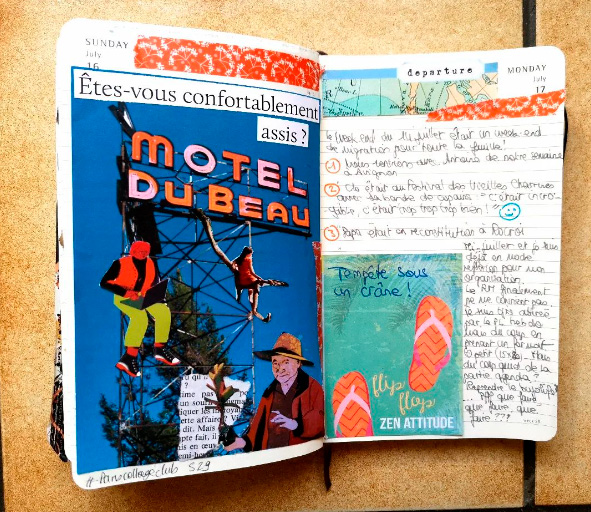 SUNDAY
July
16
Êtes-vous confortablement
assis ?
MOTEL
DU BEAU
#Pariscollageclub S29
departure
MONDAY
July
17
le week end du 14 juillet était un week-end
de migration pour toute la famille!
① Nous rentrions avec de notre semaine
à Avignon
② était au Festival des Vieilles Charrues
avec sa bande de copains "c'était incro-
yable, c'était trop trop trop bien!"
③ Papa était en reconstitution à Rocroi
Mi-juillet et je suis
déjà en mode
réflexion pour mon
organisation.
Le finalement
ne me convient pas
je suis très attirée
par le
mais du coup en
prenant un format
petit Mais
du coup quid de la
partie agenda?
que faire
que faire que
faire ???
Tempête sous
un crâne!
flip
flop
ZEN ATTITUDE